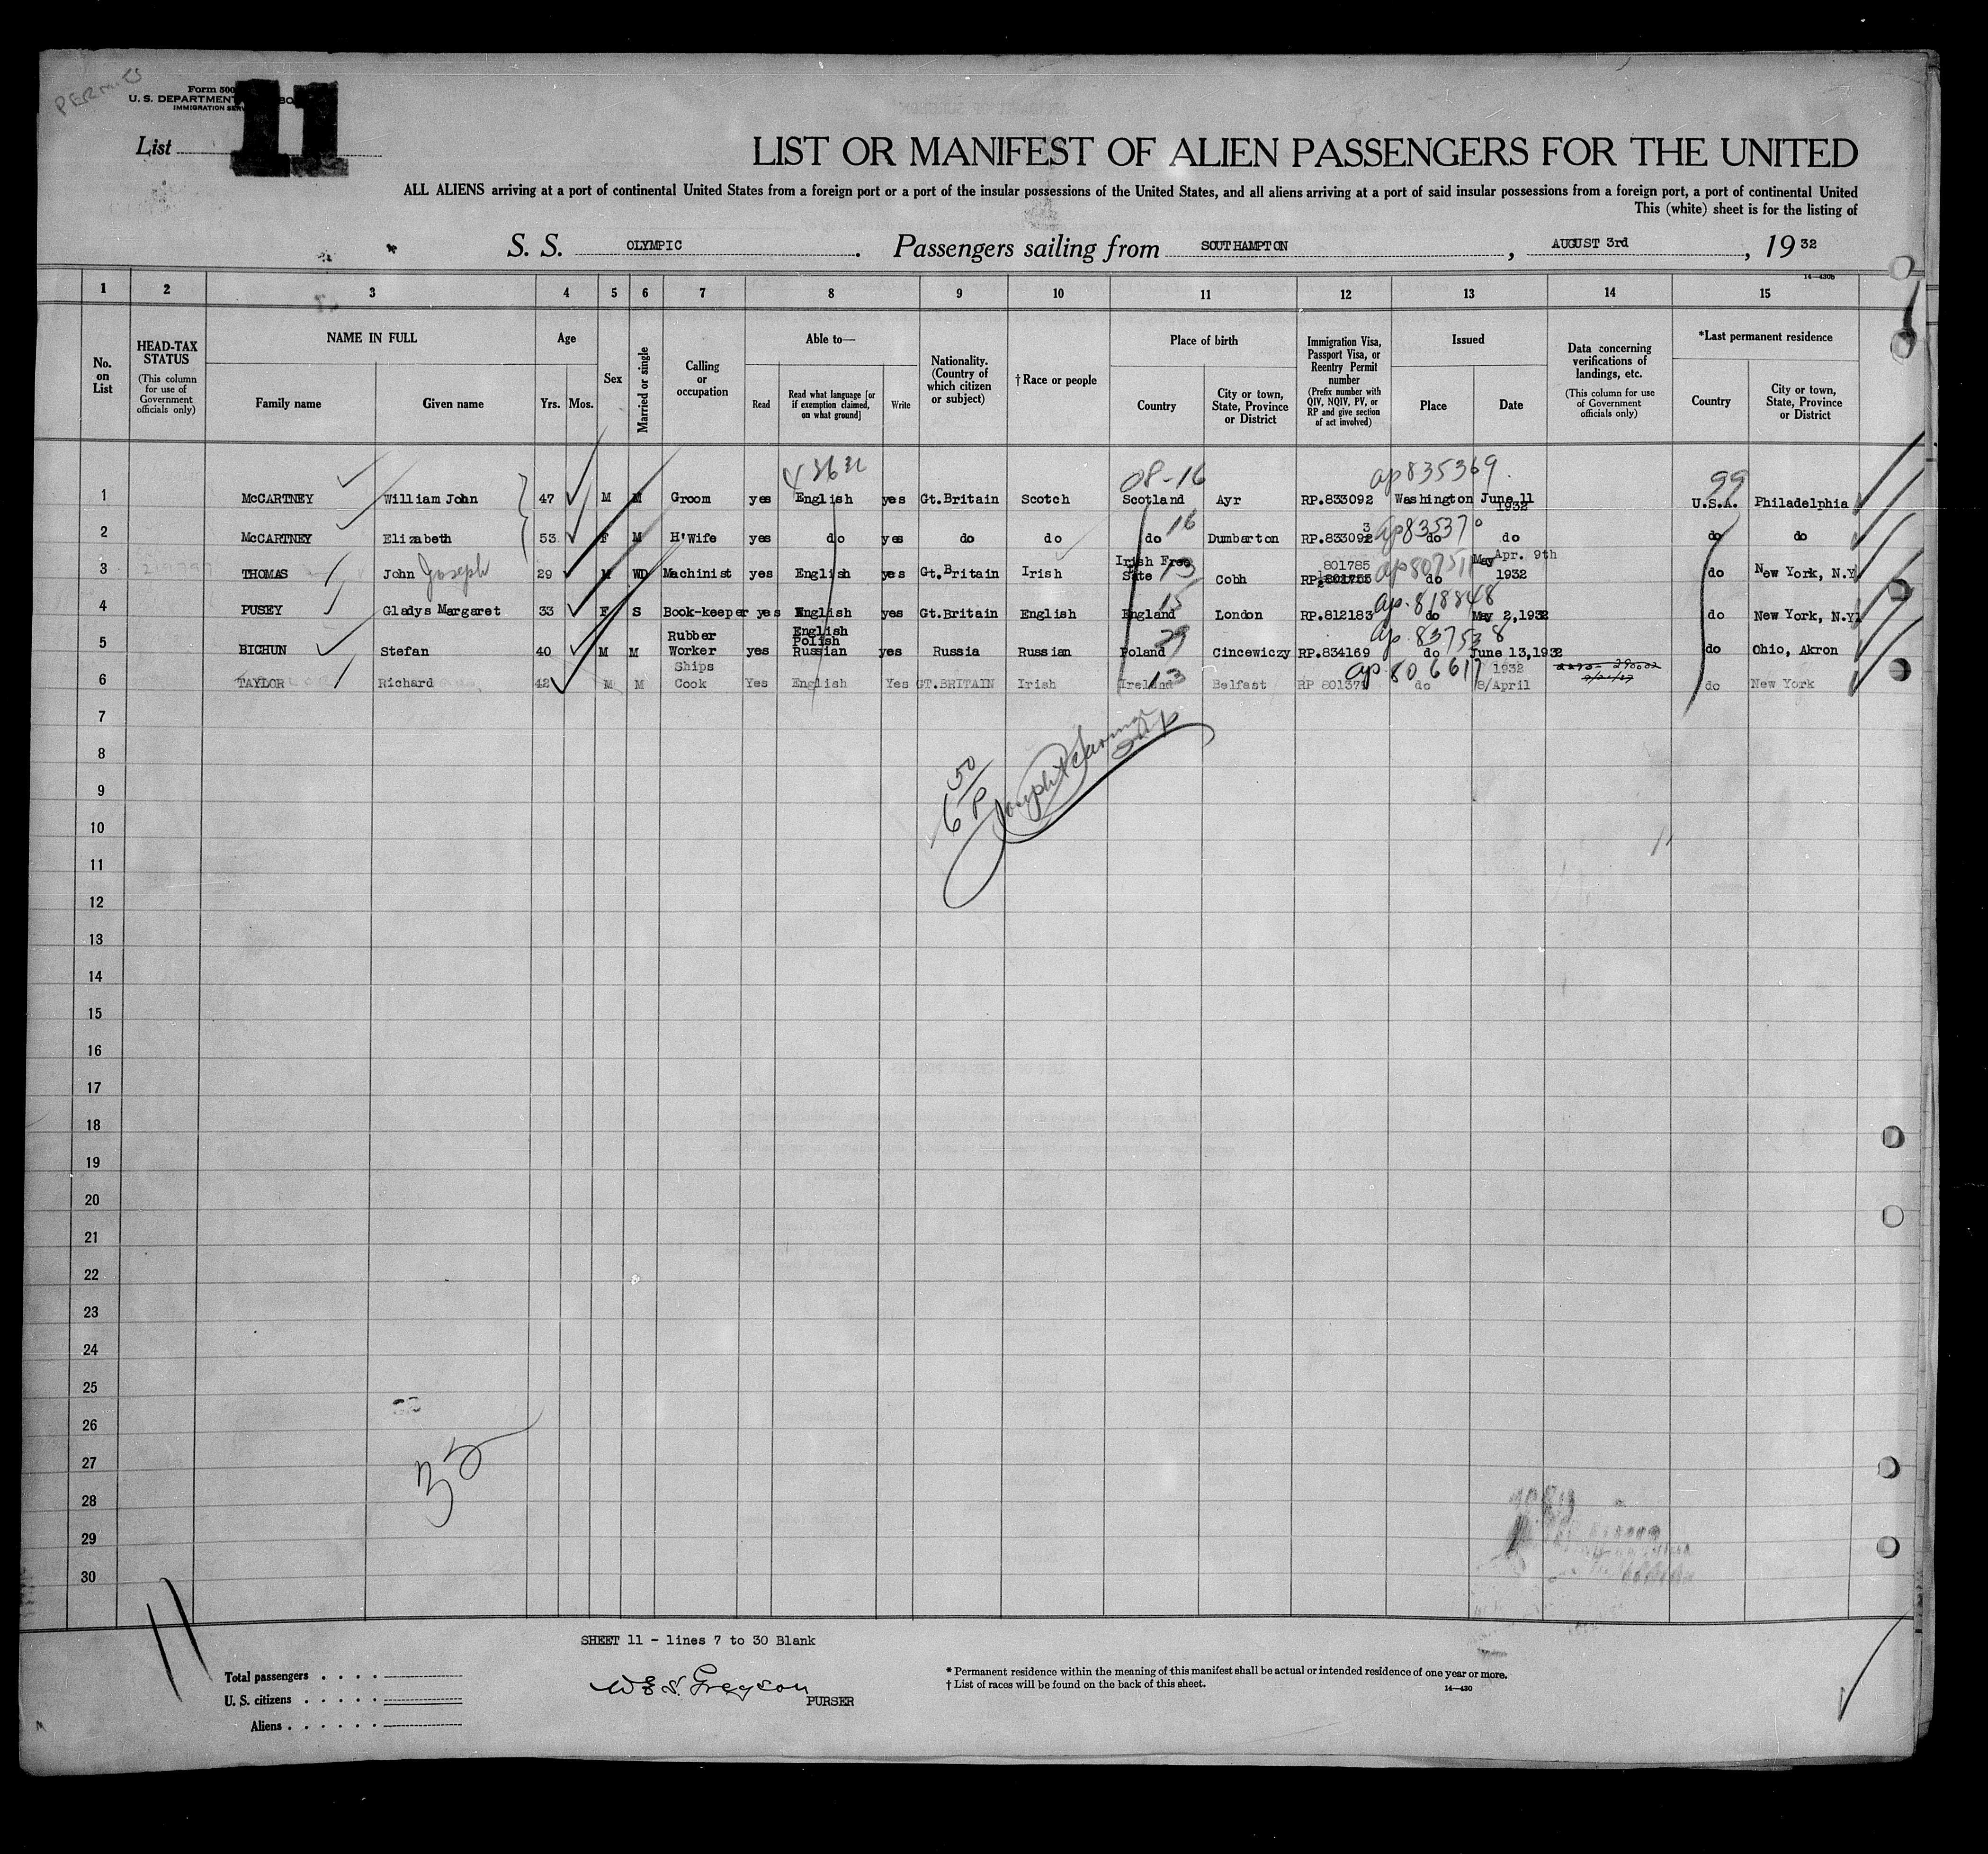 PERMITS
Form 500
U. S. DEPARTMENT
IMMIGRATION
List 11
LIST OR MANIFEST OF ALIEN PASSENGERS FOR THE UNITED
ALL ALIENS arriving at a port of continental United States from a foreign port or a port of the insular possessions of the United States, and all aliens arriving at a port of said insular possessions from a foreign port, a port of continental United
This (white) sheet is for the listing of
S. S. OLYMPIC. Passengers sailing from SOUTHAMPTON, AUGUST 3rd, 19 32
14—430b
1 2 3 4 5 6 7 8 9 10 11 12 13 14 15
No. on List
HEAD-TAX STATUS (This column for use of Government officials only)
NAME IN FULL Family name Given name
Age Yrs. Mos.
Sex
Married or single
Calling or occupation
Able to— Read Read what language [or if exemption claimed, on what ground] Write
Nationality. (Country of which citizen or subject)
† Race or people
Place of birth Country City or town, State, Province or District
Immigration Visa, Passport Visa, or Reentry Permit number (Prefix number with QIV, NQIV, PV, or RP and give section of act involved)
Issued Place Date
Data concerning verifications of landings, etc. (This column for use of Government officials only)
*Last permanent residence Country City or town, State, Province or District
08-16 ap835369 99
1 McCARTNEY William John 47 M M Groom yes English yes Gt.Britain Scotch Scotland Ayr RP.833092 Washington June 11 1932 U.S.A. Philadelphia
16 3 ap835370
2 McCARTNEY Elizabeth 53 F M H'Wife yes do yes do do do Dumbarton RP.833092 do do do do
3 THOMAS John Joseph 29 M WD Machinist yes English yes Gt.Britain Irish Irish Free Sate 13 Cobh 801785 RP.801755 do May Apr. 9th 1932 do New York, N.Y
15 ap.818848
4 PUSEY Gladys Margaret 33 F S Book-keeper yes English yes Gt.Britain English England London RP.812183 do May 2,1932 do New York, N.Y
29 ap.837538
5 BICHUN Stefan 40 M M Rubber Worker yes English Polish Russian yes Russia Russian Poland Cincewiczy RP.834169 do June 13,1932 do Ohio, Akron
13 ap 806617
6 TAYLOR Richard 42 M M Ships Cook Yes English Yes GT.BRITAIN Irish Ireland Belfast RP 80137 do 1932 8/April do New York
7
8
6 50/P
9
10
11
12
13
14
15
16
17
18
19
20
21
22
23
24
25
26
27
28
29
30
11
SHEET 11 - lines 7 to 30 Blank
Total passengers . . . .
U. S. citizens . . . . .
Aliens . . . . . .
W E S. Gregson
PURSER
* Permanent residence within the meaning of this manifest shall be actual or intended residence of one year or more.
† List of races will be found on the back of this sheet.
14—430